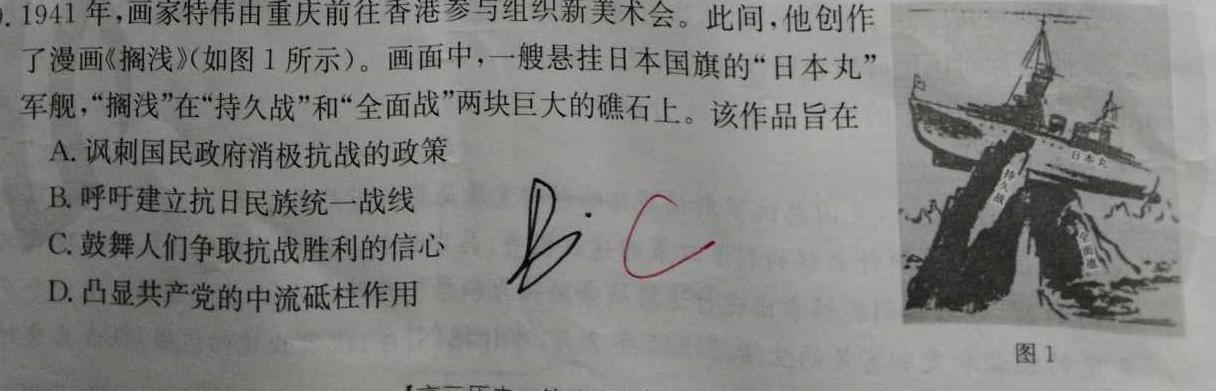 . 1941年,画家特伟由重庆前往香港参与组织新美术会。此间,他创作
了漫画《搁浅》(如图1所示)。画面中,一艘悬挂日本国旗的“日本丸”
军舰,“搁浅”在“持久战”和“全面战”两块巨大的礁石上。该作品旨在
A. 讽刺国民政府消极抗战的政策
B. 呼吁建立抗日民族统一战线
C. 鼓舞人们争取抗战胜利的信心
D. 凸显共产党的中流砥柱作用
B. C
日本丸
持久战
全面战
图1